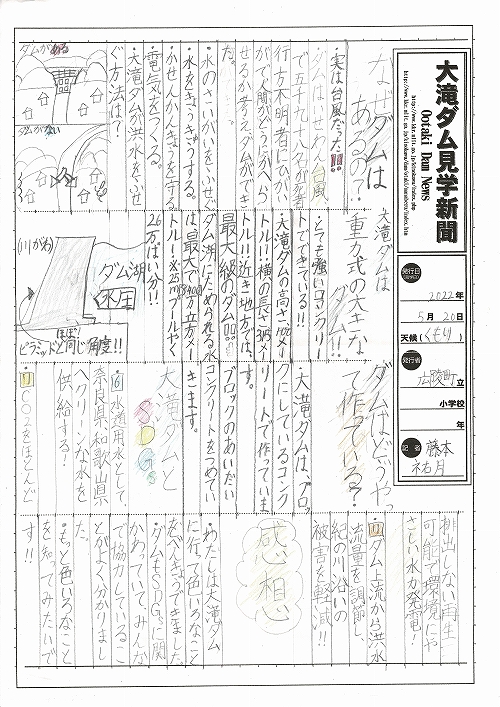 大滝ダム見学新聞
Ootaki Dam News
発行日
2022年
5月20日
天候(くもり)
発行者
広陵町立
小学校
年
記者 藤本
祐月
なぜダムは
あるの?
実は台風だった!!!
・ダムはいせわん台風
で五千九十八名が死者
行方不明者にひがい
がで人間がどうにかへら
せるか考え、ダムができ
た。
・水のさいがいをふせぐ
・水をきょうきゅうする。
・かせんかんきょうを守る
・電気をつくる。
・大滝ダムが洪水をふせ
ぐ方法は?
ダムがある
ダムがない
大滝ダムは
重力式の大きな
ダム!!
・とても強いコンクリー
トでできている!!
・大滝ダムの高さ100メー
トル!!横の長さ315メー
トル!!近き地方では、
最大級のダム!!!
ダム湖にためられる水
は最大で8400万立方メー
トル!※25mプールやく
26万ばい分!!
(川がわ)
ダム湖
水圧
ピラミッドとほぼ同じ角度!!
ダムはどうやっ
て作っている?
・大滝ダムは、ブロッ
クにしているコンク
リートで作っていま
す。
ブロックのあいだい
コンクリートをつめてい
きます。
大滝ダムと
SDGs
⑥水道用水として、
奈良県、和歌山県
へクリーンな水を
供給する!
⑦CO2をほとんど
排出しない再生
可能で環境にや
さしい水力発電!
⑪ダム上流から洪水
流量を調節し、
紀の川沿いの
被害を軽減!!
感想
・わたしは大滝ダム
に行って色いろなこと
をべんきょうできました。
ダムもSDGsに関
かわっていて、みんな
で協力しているこ
とがよく分かりまし
た。
・もっと色いろなこと
を知ってみたいで
す!!